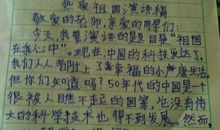 热爱祖国演讲稿
敬爱的老师、亲爱的同学们:
今天,我要演讲的是题目"祖国
在我心中"。现在,中国的科技发达了,
我们人人都过上了幸福的小康生活。
但你们知道吗?50年代的中国是一个
很被人瞧不起的国家,也没有伟
大的科学技术也得不到发展。然而,